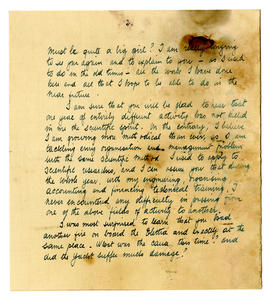 must be quite a big girl? I am really longing
to see you again and to explain to you - as I used
to do in the old times - all the works I have done
here and all that I hope to be able to do in the
near future.
I am sure that you will be glad to hear that
one year of entirely different activity has not killed
in me the scientific spirit. On the contrary, I believe
I am growing more methodical than ever as I am
tackling every organisation and management problem
with the same scientific method I used to apply to
scientific researches, and I can assure you that during
the whole year, with my engineering, organising,
accounting and financing technical training, I
never encountered any difficulty in passing from
one of the above fields of activity to another.
I was most surprised to learn that you had
another fire on board the Elettra and exactly at the
same place. What was the cause this time? and
did the yacht suffer much damage?